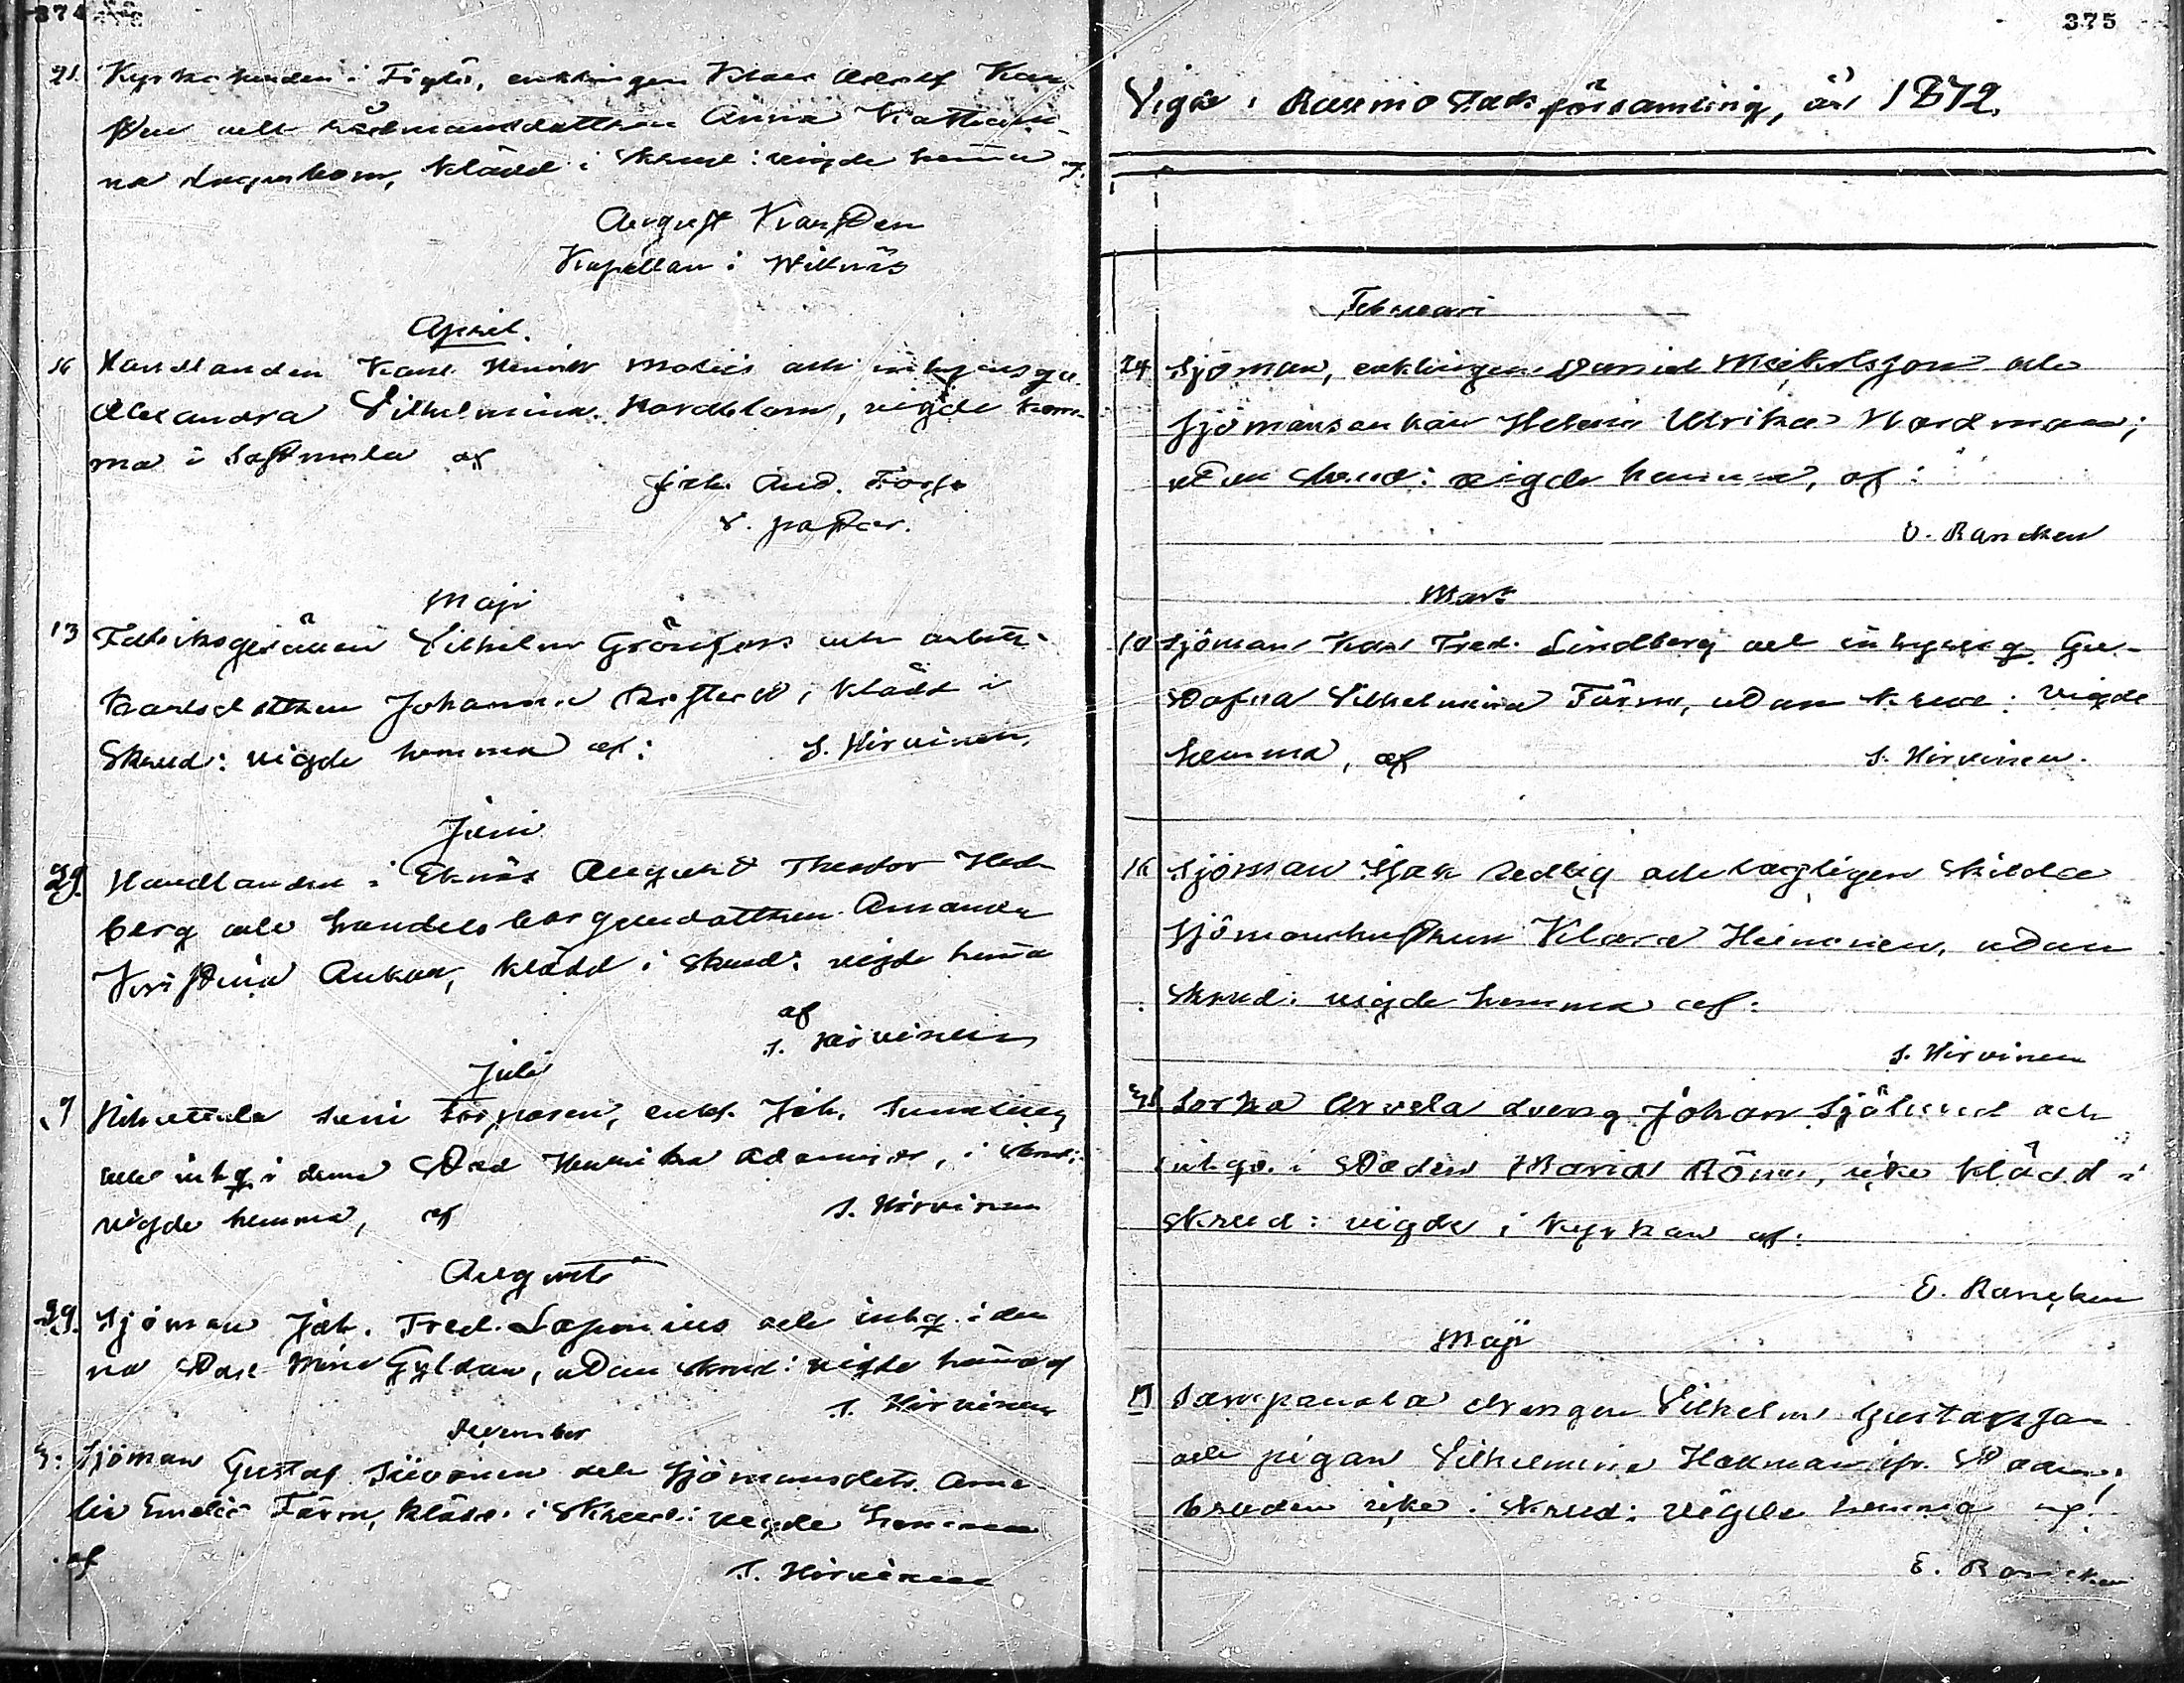 374
21. Kyrkoherden i Föglö, enklingen Klaes Adolf Kar-
sten och rådmansdottren Anna Kathari-
na Lagerbom, klädd i skrud: vigde hemma af
August Karsten
Kapellan i Wiknäs
April.
16 Handlanden Karl Henrik och inhyiesqv.
Alexandra Vilhelmina Nordblom, vigde hem-
ma i af
Joh. And. Forss
v. pastor.
Maji
13 Fabriksgesällen Vilhelm Grönfors och arbets-
karlsdottren Johanna klädd i
skrud: vigde hemma af: S. Hirvinen.
Juni
29. Handlanden i Eknäs August Theodor Hed-
berg och handelsborgaredottren Amanda
Kristina klädd i skrud: vigde hemma
af
S. Hirvinen
Juli
7 enkl. Joh.
och inhq. i denna stad Henrika i skrud:
vigde hemma, af S. Hirvinen
Augusti
29. Sjöman Joh. Fred. Laponius och inhq. i den-
na stad Mina Gyldan, utan skrud: vigde hemma af
S. Hirvinen
December
3: Sjöman Gustaf och sjömansdotr. Ama-
lia Emelie Färm, klädd i skrud: vigde hemma
af
S. Hirvinen
375
Vigde i Raumo Stads församling, år 1872.
Februari
24 Sjöman, enklingen Daniel Mickelsson och
sjömansenkan Helena Ulrika Nordman;
utan skrud: vigde hemma, af:
E. Rancken
Mars
10 Sjöman Karl Fred. Lindberg och inhysesq. Gu-
stafva Vilhelmina Färm, utan skrud: vigde
hemma, af S. Hirvinen.
16 Sjöman Isak Sedlig och lagligen skilda
sjömanshustrun Klara Heinonen, utan
skrud: vigde hemma af:
S. Hirvinen
31. Sorka Arvela dreng Johan Sjölund och
inhqv. i staden Maria icke klädd i
skrud: vigde i kyrkan af:
E. Rancken
Maji
drengen Vilhelm Gustafsson
och pigan Vilhelmina
bruden icke i skrud: vigde hemma af:
E. Rancken